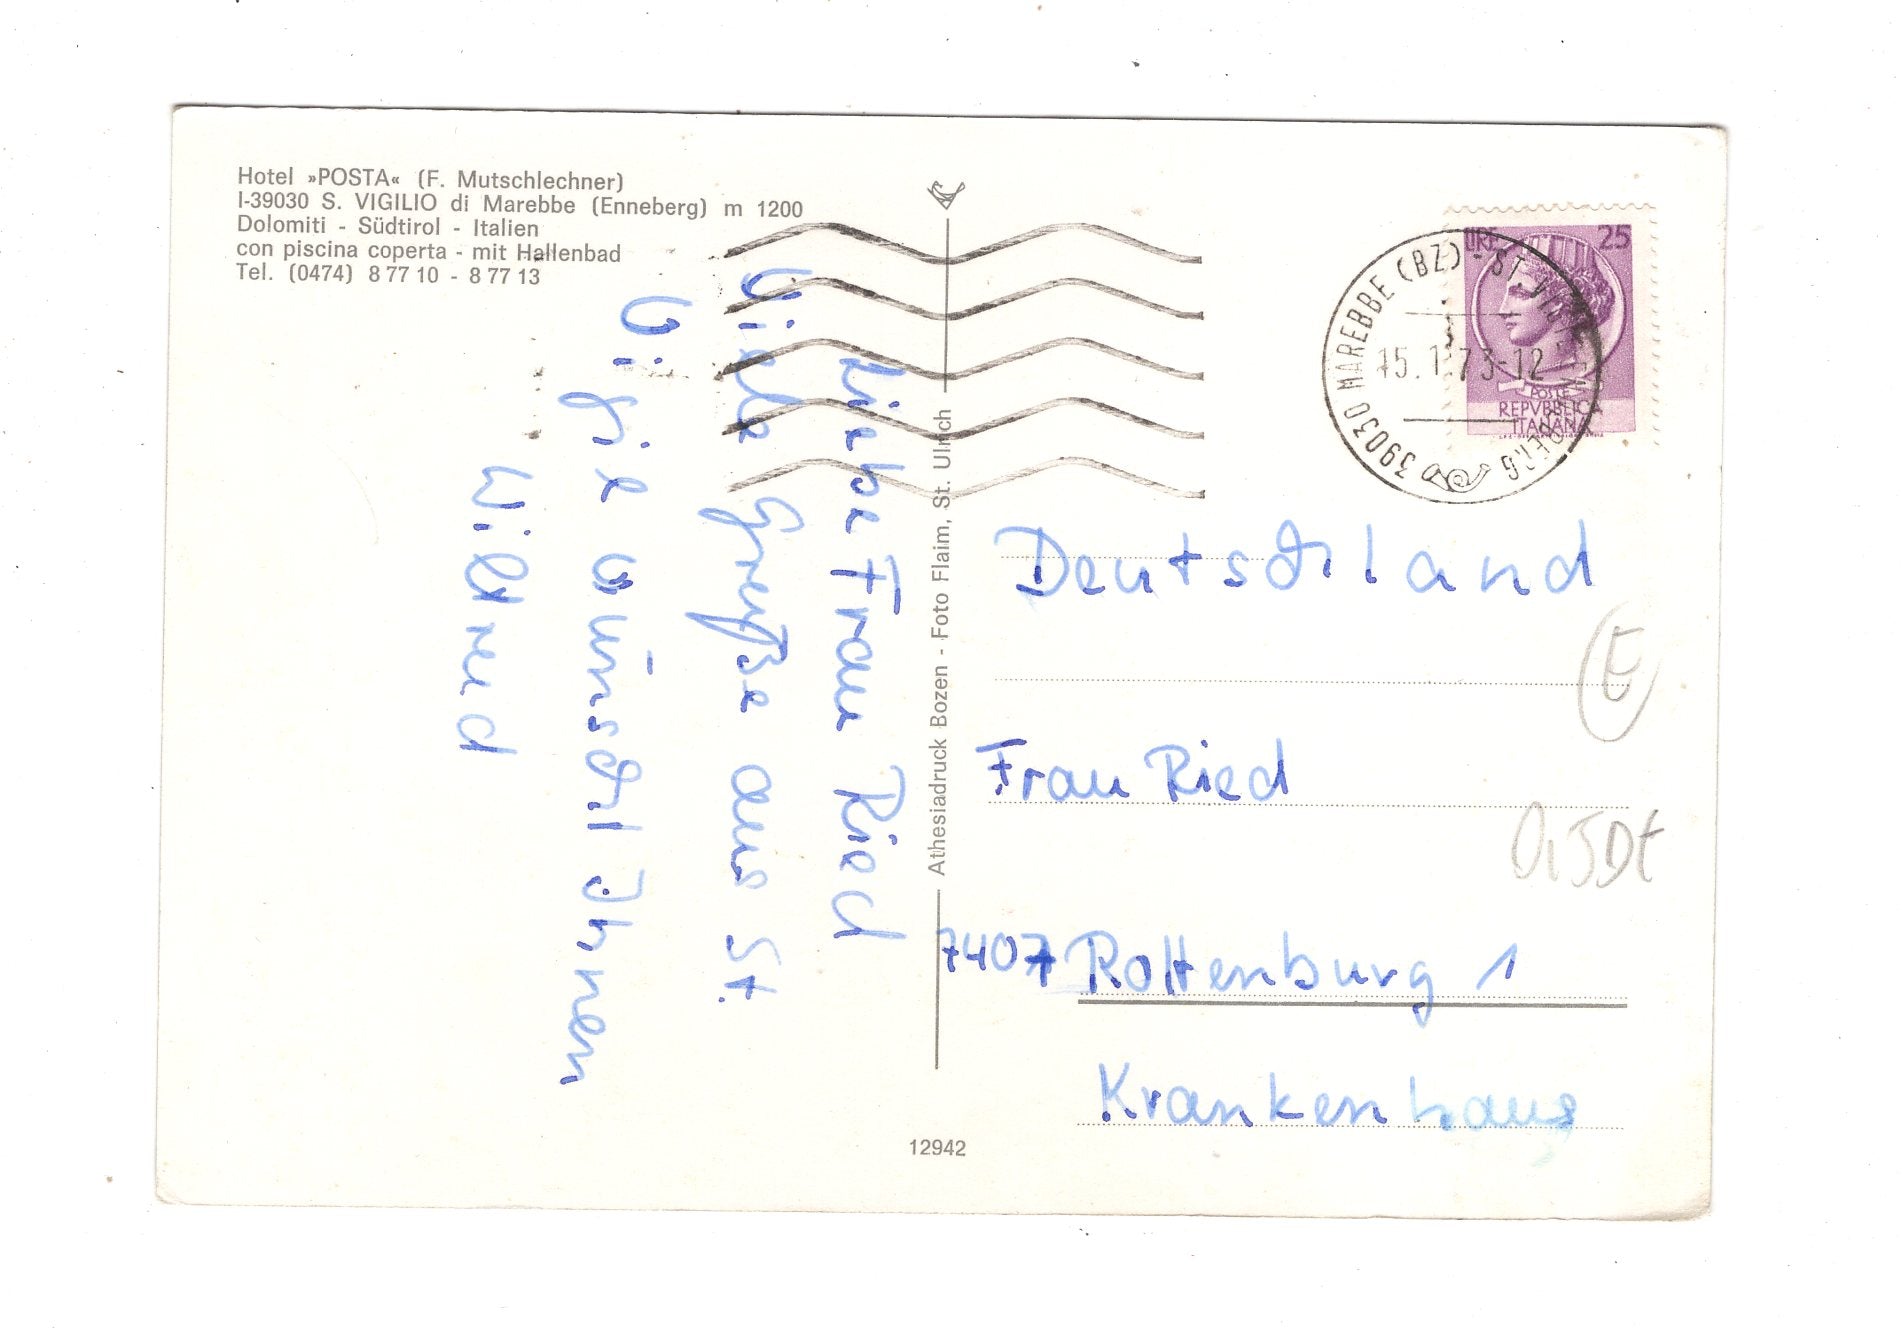 Hotel »POSTA« (F. Mutschlechner)
I-39030 S. VIGILIO di Marebbe (Enneberg) m 1200
Dolomiti - Südtirol - Italien
con piscina coperta - mit Hallenbad
Tel. (0474) 8 77 10 - 8 77 13
Liebe Frau Ried
Viele Grüße aus St.
Vigil wünscht Ihnen
Wiltrud
Athesiadruck Bozen - Foto Flaim, St. Ulrich
12942
LIRE 25
POSTE
REPVBBLICA
ITALIANA
39030 MAREBBE (BZ) - ST.
15.1.73-12
Deutschland
Frau Ried
7407 Rottenburg 1
Krankenhaus
E